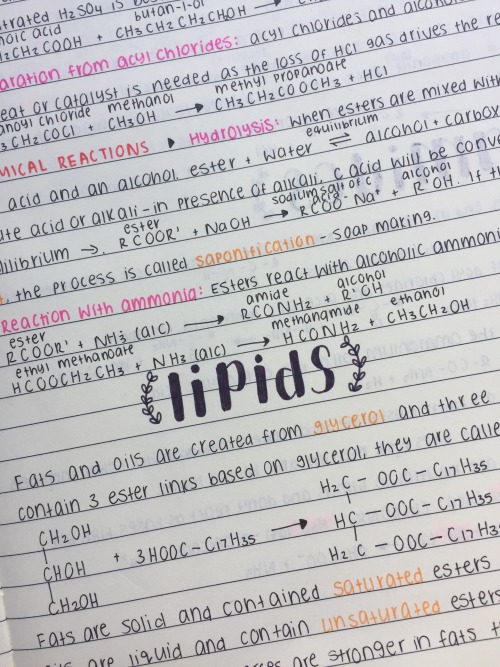 trated H2SO4 is
butan-1-ol
noic acid
H2CH2COOH + CH3CH2CH2CHOH →
aration from acyl chlorides: acyl chlorides and alcoho
eat or catalyst is needed as the loss of HCl gas drives the r
anoyl chloride methanol methyl propanoate
3CH2COCl + CH3OH → CH3CH2COOCH3 + HCl
MICAL REACTIONS Hydrolysis: when esters are mixed with
equilibrium
acid and an alcohol. ester + water ⇌ alcohol + carbox
ute acid or alkali - in presence of alkali, c acid will be conve
ester sodium salt of c. acid alcohol
ilibrium → RCOOR' + NaOH → RCOO-Na+ + R'OH. If t
the process is called saponification - soap making.
Reaction with ammonia: Esters react with alcoholic ammoni
ester amide alcohol
RCOOR' + NH3 (alc) → RCONH2 + R'OH
ethyl methanoate methanamide ethanol
HCOOCH2CH3 + NH3 (alc) → HCONH2 + CH3CH2OH
lipids
Fats and oils are created from glycerol and three
contain 3 ester links based on glycerol, they are calle
CH2OH H2C - OOC - C17H35
CHOH + 3HOOC - C17H35 → HC - OOC - C17H35
CH2OH H2C - OOC - C17H3
Fats are solid and contained saturated esters
are liquid and contain unsaturated esters
are stronger in fats t